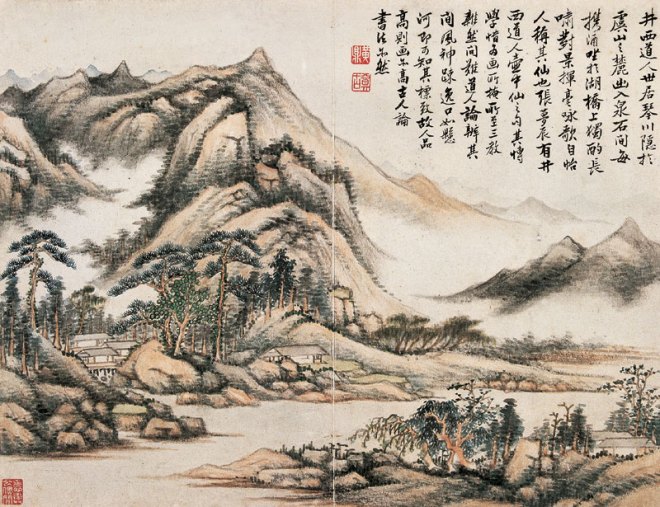 井西道人世居琴川隱於
虞山之麓幽泉石間每
携酒坐於湖橋上獨酌長
嘯對景揮毫咏歌自怡
人稱其仙也張夢辰有井
西道人壺中仙之句其博
學惜為画所掩所至三教
雜然問難道人論辨其
間風神竦逸口如懸
河即可知其標致故人品
高則画亦高古人論
書法亦然